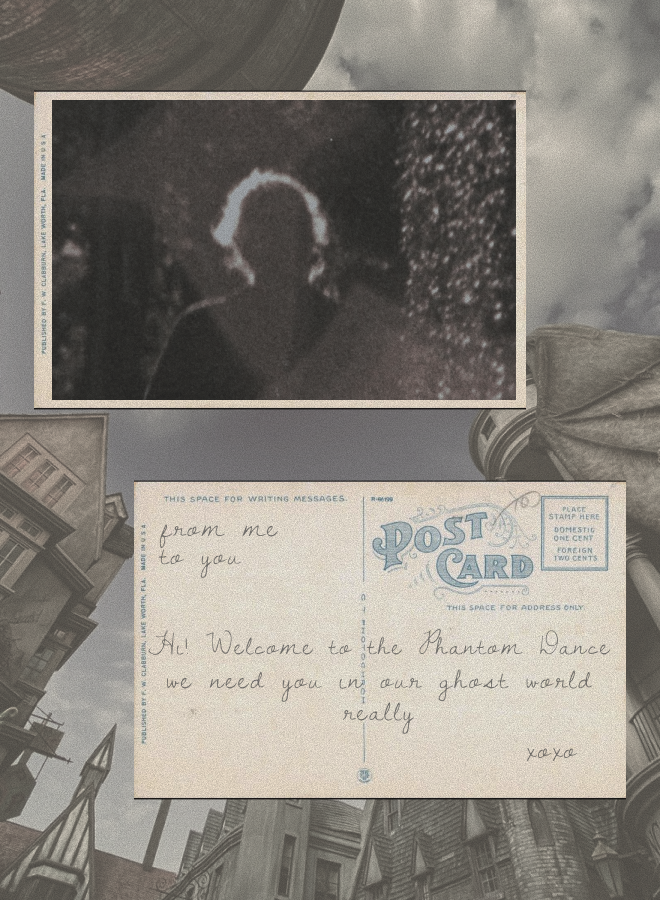 PUBLISHED BY F. W. CLABBURN, LAKE WORTH, FLA. MADE IN U S A
THIS SPACE FOR WRITING MESSAGES.
from me
to you
POST
CARD
PLACE
STAMP HERE
DOMESTIC
ONE CENT
FOREIGN
TWO CENTS
THIS SPACE FOR ADDRESS ONLY.
PUBLISHED BY F. W. CLABBURN, LAKE WORTH, FLA. MADE IN U S A
Hi! Welcome to the Phantom Dance
we need you in our ghost world
really
xoxo